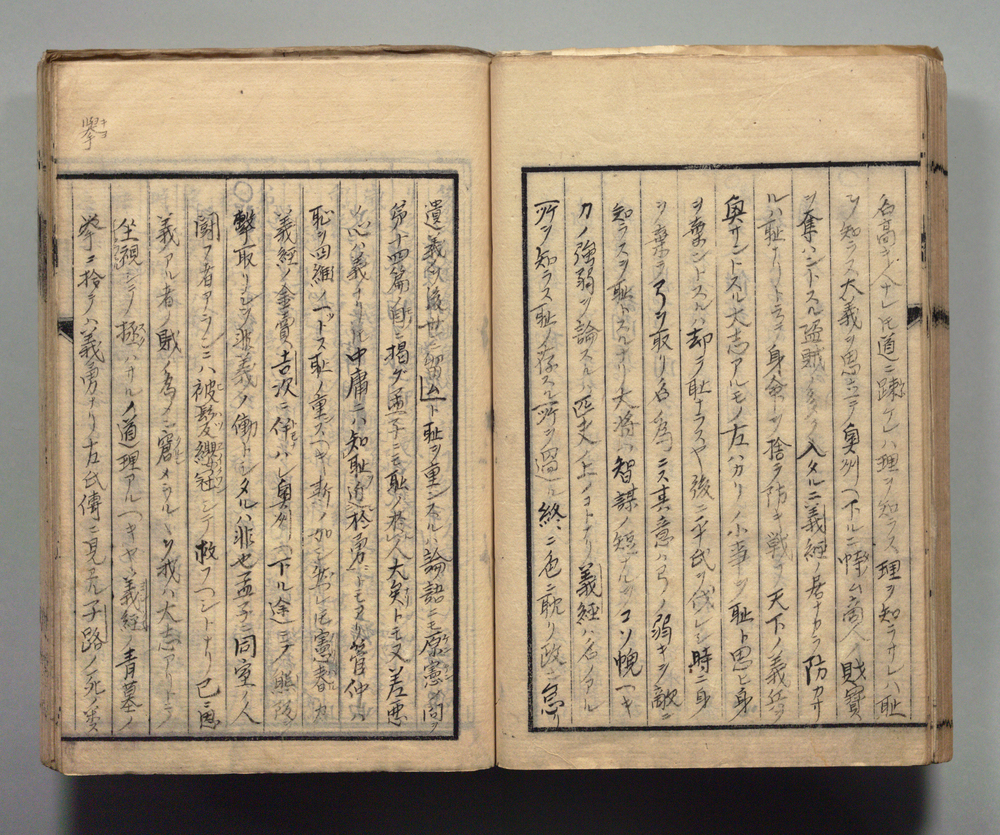 名高キ人ナレ𪜈道ニ疎ケレハ理ヲ知ラス理ヲ知ラサレハ耻
ヲ知ラス大義ヲ思立テ奥州ヘ下ルニ商人ノ賊寶
ヲ奪ハントスル盗賊ノ入タルニ義經ノ居ナカラ防カサ
ルハ耻ナリトテ身命ヲ捨ラ防キ戦ラ天下ノ義兵ヲ
奥サントスル大志アルモノ左ハカリノ小事ヲ耻ト思ヒ身
ヲ棄ントスルハ却ラ耻ナラスヤ後ニ平氏ヲ伐レシ時ニ身
ヲ棄テラ弓ヲ取リ名ヲ為ニス其意ハ弓ノ弱キヲ敵ニ
知ラスヲ耻トスルナリ大将ハ智謀ノ短ナルヲコソ愧ヘキ
カノ強弱ヲ論スルハ匹夫ノ上ノコトナリ義經ハ名アル
所ヲ知ラス耻ノ存スル所ヲ過ル終ニ色ニ耽リ政ニ急
遺義ヲ後世ニ留ムト耻ヲ重ンスルハ論語ニモ原憲ノ問ヲ
第十四篇ノ首ニ揭ケ孟子ニモ耻ノ於人大矣トモ又羞悪
ノ心ハ義ナリ中庸ニハ知耻近於勇ニトモ又管仲ハ
恥ヲ四維ノ一ットス耻ノ重スヘキ斯ノ加シ然レ𪜈憲春カ
義經ノ金賣吉次ニ伴ハレ奥州ヘ下ル途ニテノ熊坂
撃取リシヲ非義ノ働トシタルハ非也孟子ニ同室ノ人
闘フ者アランニハ被髪纓冠シテ救フヘシトナリ已ニ
義アル者ノ賊ノ為メニ窘メラルヽヲ我ハ大志アリトラ
坐視シテノ極ハサルノ道理アルヘキヤ義經ノ青墓ノ
挙ニ捨テハ義勇ナリ左氏傳ニ見エル子路ノ死ノ類
擧キヨ